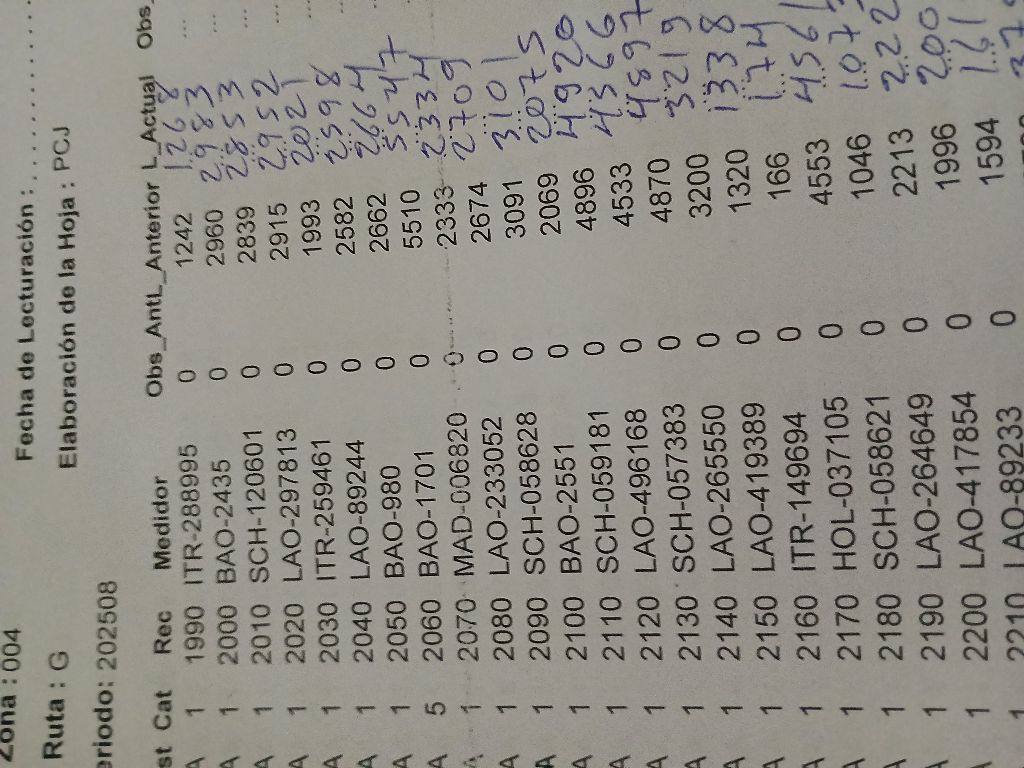 Zona : 004 Fecha de Lecturación :
Ruta : G Elaboración de la Hoja : PCJ
eriodo: 202508
st Cat Rec Medidor Obs_AntL_Anterior L_Actual Obs_
A 1 1990 ITR-288995 0 1242 1268
A 1 2000 BAO-2435 0 2960 2983
A 1 2010 SCH-120601 0 2839 2853
A 1 2020 LAO-297813 0 2915 2952
A 1 2030 ITR-259461 0 1993 2021
A 1 2040 LAO-89244 0 2582 2598
A 1 2050 BAO-980 0 2662 2664
A 5 2060 BAO-1701 0 5510 5547
A 1 2070 MAD-006820 0 2333 2334
A 1 2080 LAO-233052 0 2674 2709
A 1 2090 SCH-058628 0 3091 3101
A 1 2100 BAO-2551 0 2069 2075
A 1 2110 SCH-059181 0 4896 4920
A 1 2120 LAO-496168 0 4533 4566
A 1 2130 SCH-057383 0 4870 4897
A 1 2140 LAO-265550 0 3200 3219
A 1 2150 LAO-419389 0 1320 1338
A 1 2160 ITR-149694 0 166 174
A 1 2170 HOL-037105 0 4553 4561
A 1 2180 SCH-058621 0 1046 107
A 1 2190 LAO-264649 0 2213 222
A 1 2200 LAO-417854 0 1996 200
A 1 2210 LAO-89233 0 1594 161